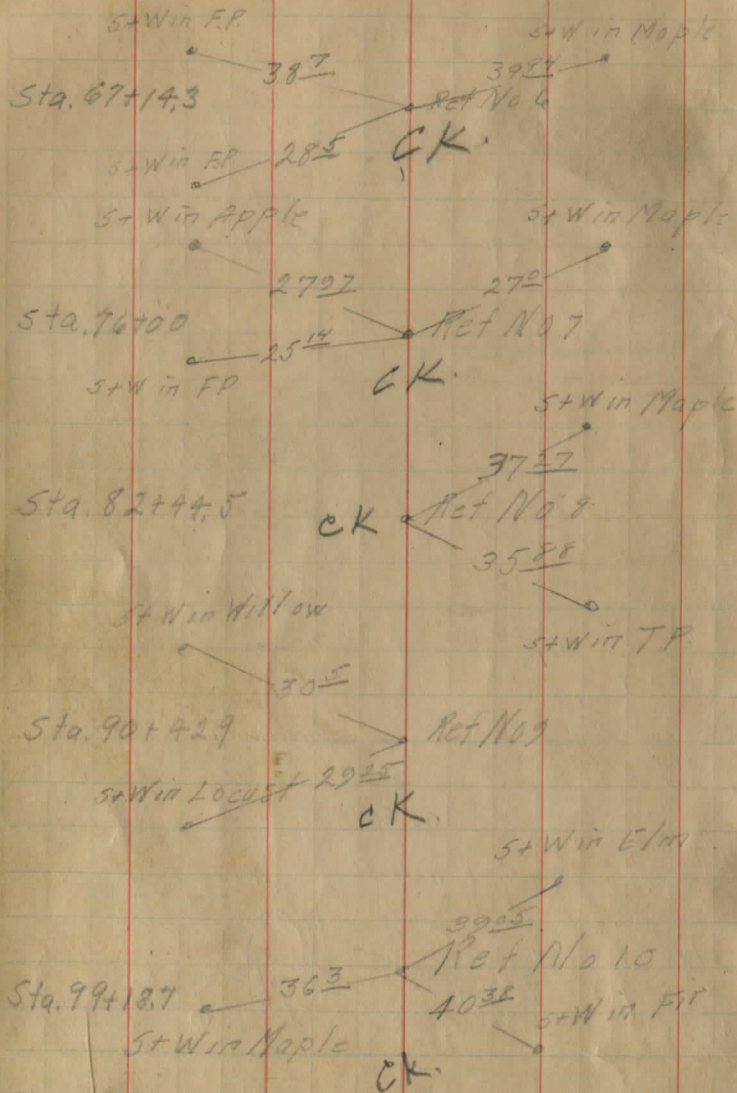 S+W in F.P.
S+W in Maple
38 7
39 94
Sta. 67+14.3
Ref No 6
CK.
28 5
S+W in F.P.
S+W in Apple
S+W in Maple
27 97
27 0
Sta. 76+00
Ref No 7
25 14
CK.
S+W in F.P.
S+W in Maple
37 57
Sta. 82+44.5
CK
Ref No 8
35 88
S+W in Willow
S+W in T.P.
30 5
Sta. 90+42.9
Ref No 9
S+W in Locust
29 25
CK
S+W in Elm
39 05
Ref No 10
Sta. 99+18.7
36 3
40 38
S+W in Maple
S+W in Fir
CK.